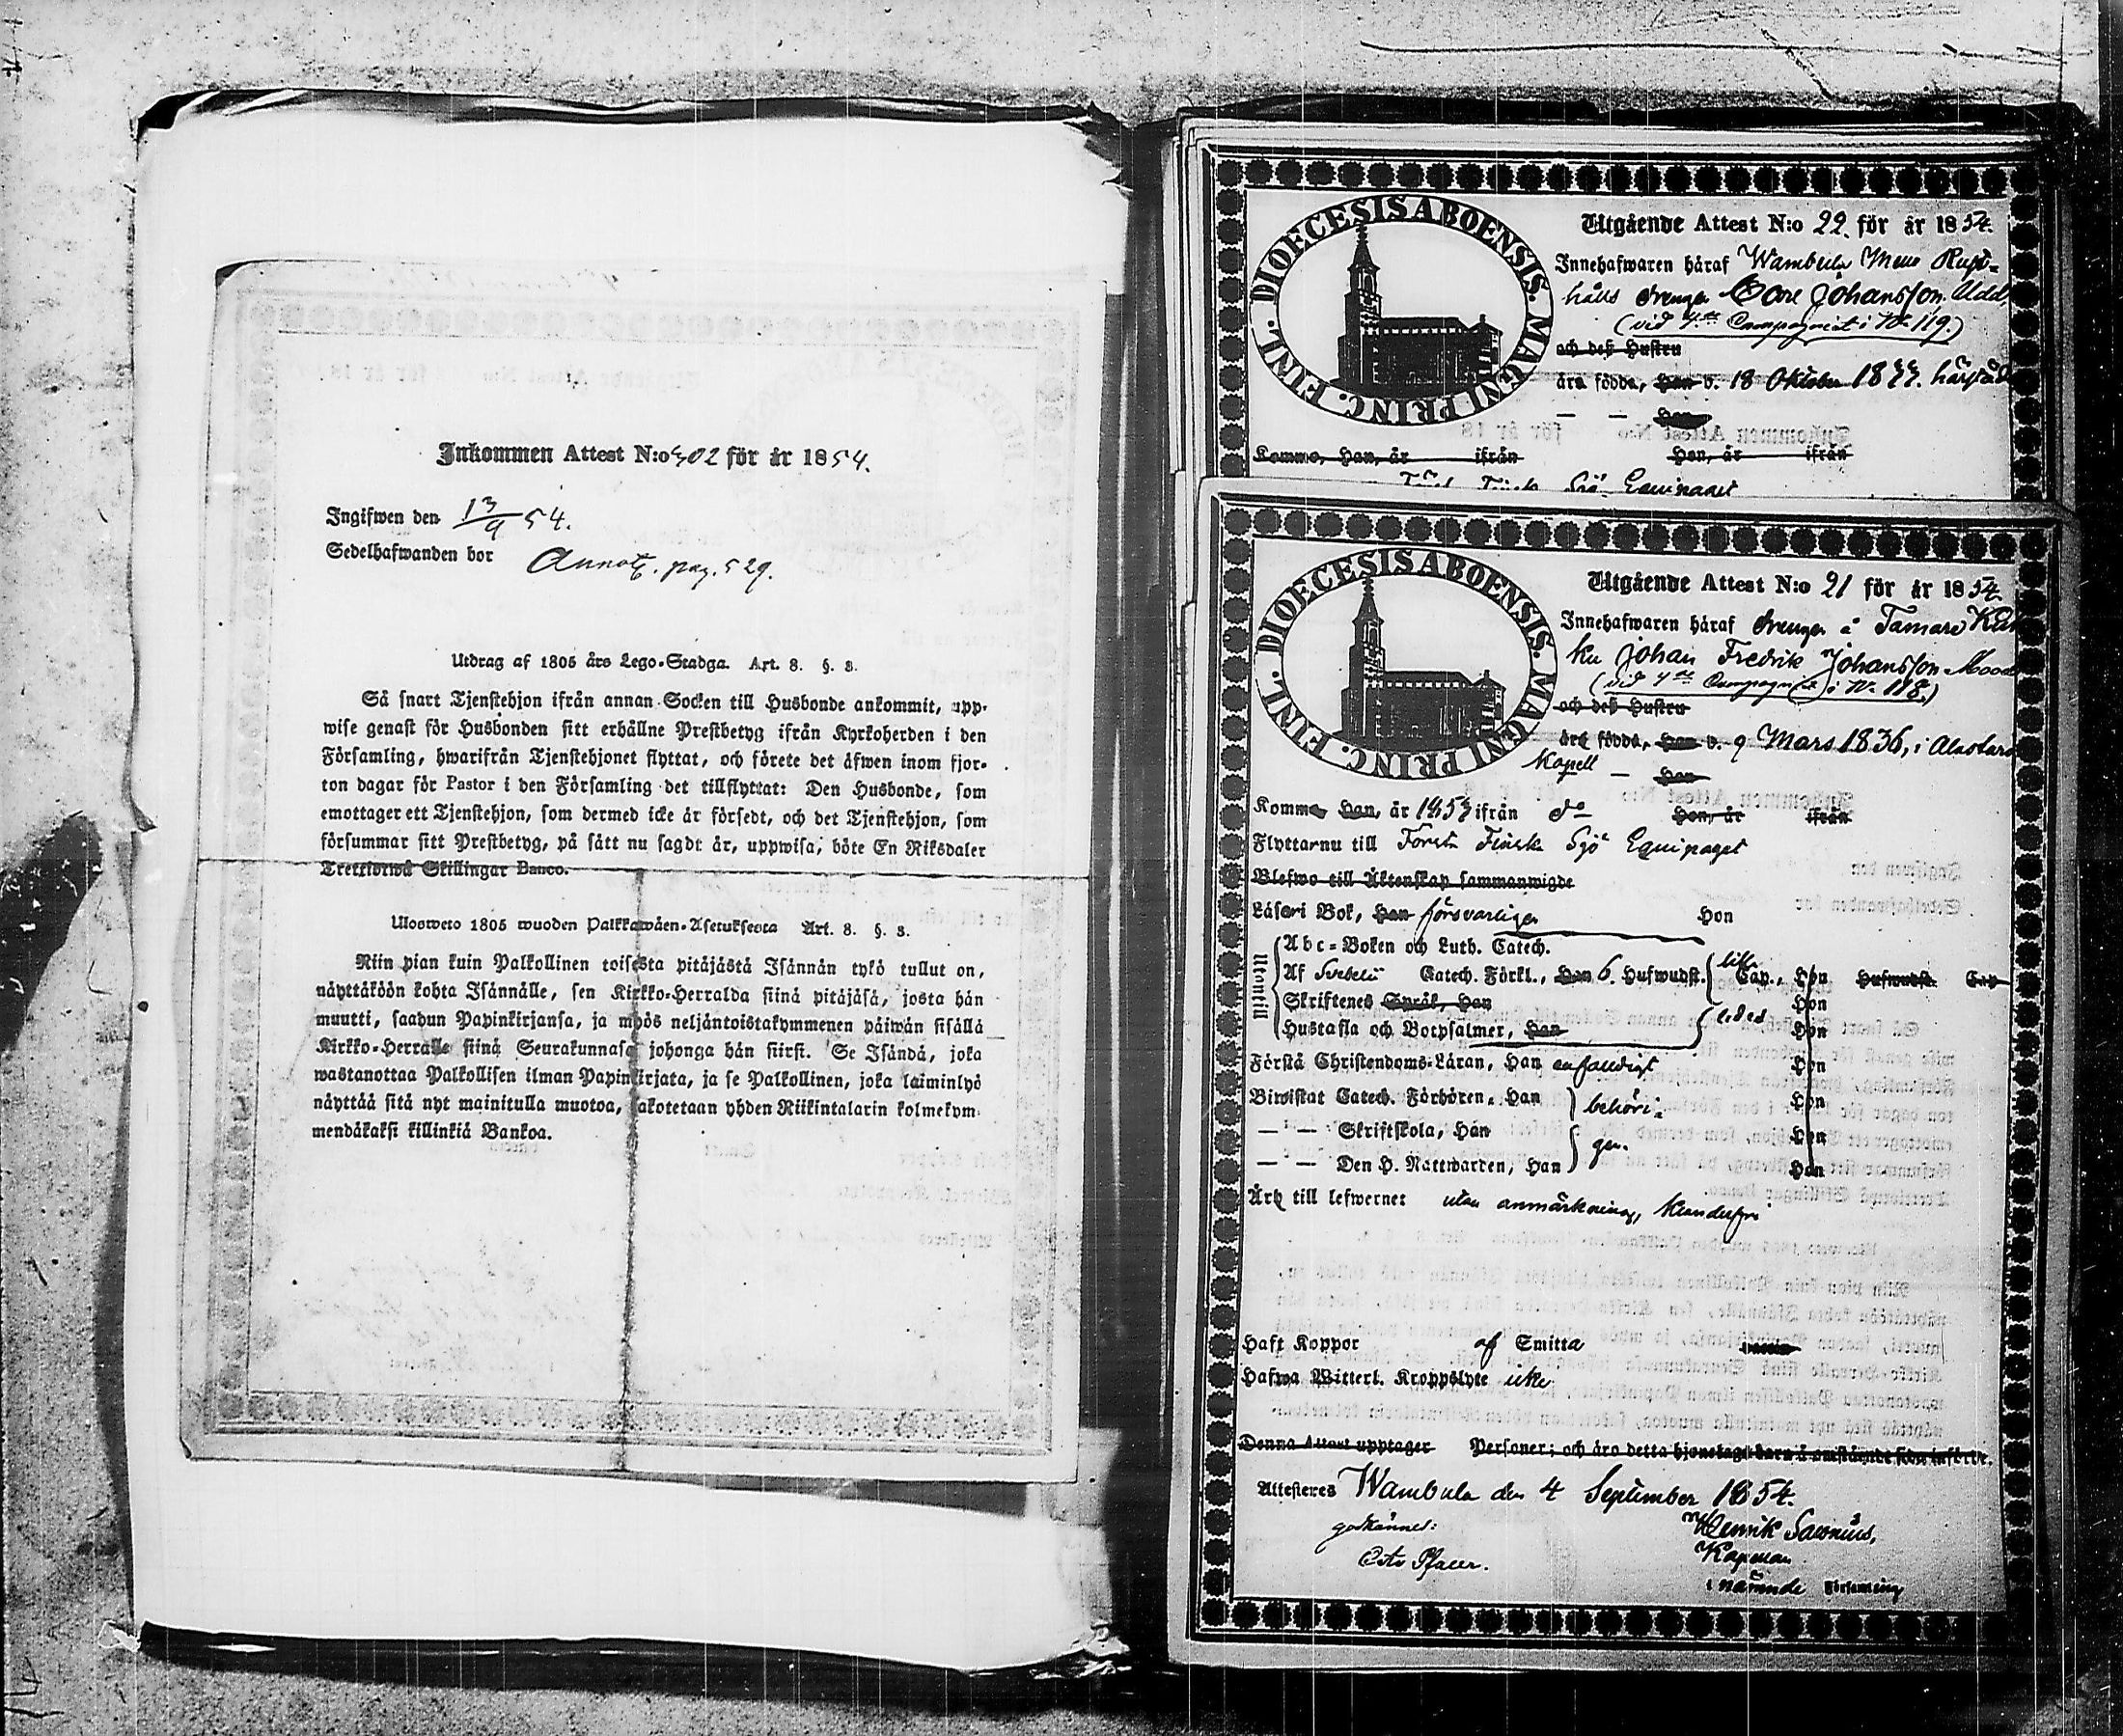 Inkommen Attest N:o 402 för år 1854.
Ingifwen den 13/9 54.
Sedelhafwanden bor Annot. pag. 529.
Utdrag af 1805 års Lego-Stadga. Art. 8. §. 3.
Så snart Tjenstehjon ifrån annan Socken till Husbonde ankommit, upp-
wise genast för Husbonden sitt erhållne Prestbetyg ifrån Kyrkoherden i den
Församling, hwarifrån Tjenstehjonet flyttat, och förete det äfwen inom fjor-
ton dagar för Pastor i den Församling det tillflyttat: Den Husbonde, som
emottager ett Tjenstehjon, som dermed icke är försedt, och det Tjenstehjon, som
försummar sitt Prestbetyg, på sätt nu sagdt är, uppwisa, böte En Riksdaler
Trettiotwå Skillingar Banco.
Ulosweto 1805 wuoden Palkkawäen-Asetuksesta Art. 8. §. 3.
Niin pian kuin Palkollinen toisesta pitäjästä Isännän tykö tullut on,
näyttäköön kohta Isännälle, sen Kirkko-Herralda siinä pitäjäsä, josta hän
muutti, saadun Papinkirjansa, ja myös neljäntoistakymmenen päiwän sisällä
Kirkko-Herralle siinä Seurakunnasa johonga hän siirsi. Se Isändä, joka
wastanottaa Palkollisen ilman Papinkirjata, ja se Palkollinen, joka laiminlyö
näyttää sitä nyt mainitulla muotoa, sakotetaan yhden Riikintalarin kolmekym-
mendäkaksi killinkiä Bankoa.
DIOECESIS ABOENSIS. MAGNI PRINC. FINL.
Utgående Attest N:o 22. för år 1854.
Innehafwaren häraf Wambula Mme Rust-
hålls drengen Carl Johansson Udd,
(vid 4de Compagniet i No 119.)
och deß Hustru
äro födde, Han d. 18 Oktober 1833. härstädes
— — Hon
Komne, Han, år ifrån Hon, år ifrån
Först Finsk Sjö Equipaget
DIOECESIS ABOENSIS. MAGNI PRINC. FINL.
Utgående Attest N:o 21 för år 1854.
Innehafwaren häraf drengen å Tamare
Johan Fredrik Johansson
(vid 4de Compagniet i No 118.)
och deß Hustru
äro födde, Han d. 9 Mars 1836, i Alastaro
Kapell — Hon
Komne Han, år 1853 ifrån do Hon, år ifrån
Flyttarnu till Första Finska Sjö Equipaget
Blefwo till Äktenskap sammanwigde
Läser i Bok, Han försvarligen Hon
Utantill
Abc-Boken och Luth. Catech.
Af Svebelii Catech. Förkl., Han 6. Hufwudst. Cap., Hon Hufwudst. Cap
Skriftenes Språk, Han Hon
Hustafla och Botpsalmer, Han Hon
Förstå Christendoms-Läran, Han enfaldigt Hon
Biwistat Catech. Förhören, Han behöri- Hon
— — Skriftskola, Han gen. Hon
— — Den H. Nattwarden, Han Hon
Äro till lefwernet utan anmärkning,
Haft Koppor af Smitta
Hafwa Witterl. Kroppslyte icke
Denna Attest upptager Personer; och äro detta hjonelags barn å omstående sidan införde.
Attesteres Wambula den 4 September 1854.
godkännes: Henrik Salonius,
Kapellan
i nämnde Församling